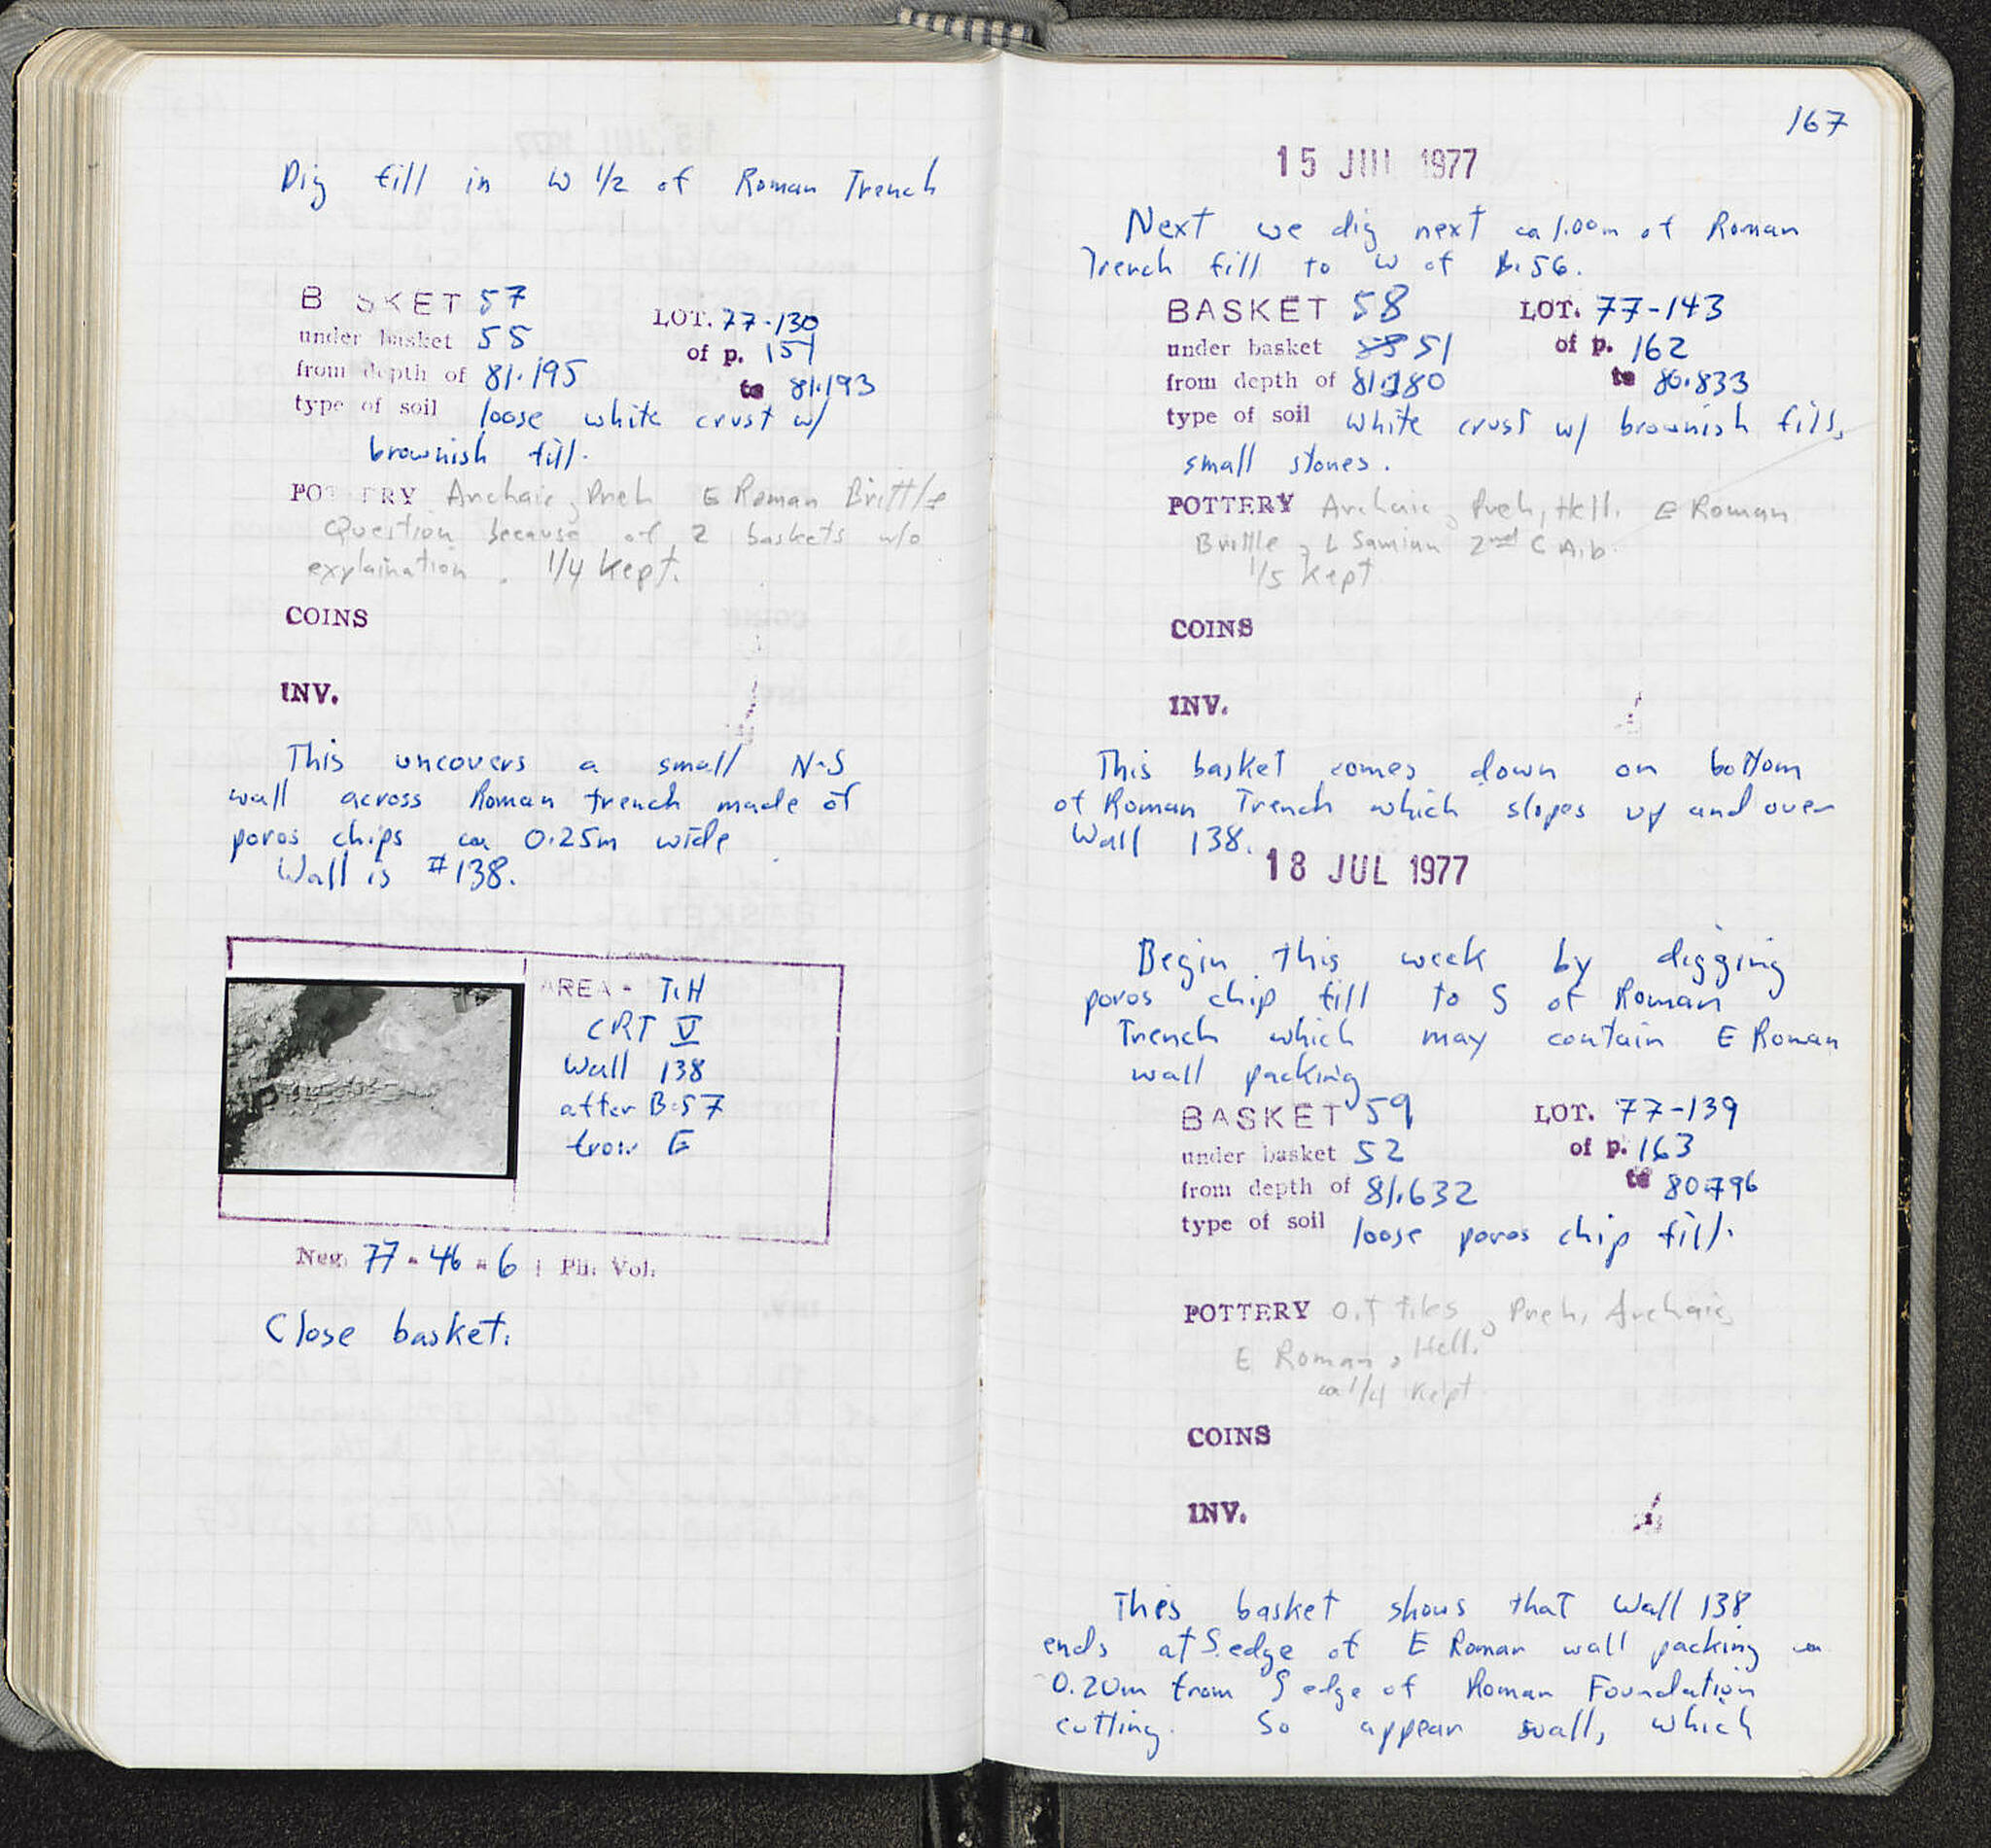 Dig fill in W 1/2 of Roman Trench
B SKET 57
LOT. 77-130
under basket 55
of p. 151
from depth of 81.195
to 81.193
type of soil loose white crust w/
brownish fill.
POTTERY Archaic, Preh E Roman Brittle
Question because of 2 baskets w/o
explaination. 1/4 Kept.
COINS
INV.
This uncovers a small N-S
wall across Roman trench made of
poros chips ca 0.25m wide
Wall is #138.
AREA - T.H
CRT V
Wall 138
after B.57
from E
Neg. 77-46-6 Ph. Vol.
Close basket.
167
15 JUL 1977
Next we dig next ca 1.00m of Roman
Trench fill to W of B.56.
BASKET 58
LOT. 77-143
under basket 51
of p. 162
from depth of
to 80.833
type of soil white crust w/ brownish fill,
small stones.
POTTERY Archaic, Preh, Hell. E Roman
Brittle, L Samian 2nd C A.b.
1/5 Kept
COINS
INV.
This basket comes down on bottom
of Roman Trench which slopes up and over
Wall 138.
18 JUL 1977
Begin this week by digging
poros chip fill to S of Roman
Trench which may contain E Roman
wall packing
BASKET 59
LOT. 77-139
under basket 52
of p. 163
from depth of 81.632
to 80.796
type of soil loose poros chip fill.
POTTERY O.T tiles, Preh, Archaic,
E Roman, Hell.
ca 1/4 Kept
COINS
INV.
This basket shows that Wall 138
ends at S. edge of E Roman wall packing ca
0.20m from S edge of Roman Foundation
cutting. So appear wall, which